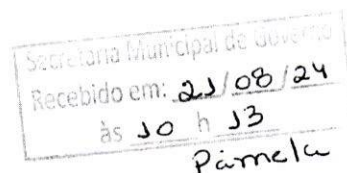 Secretaria Municipal de Governo
Recebido em: 21/08/24
às 10 h 13
Pâmela